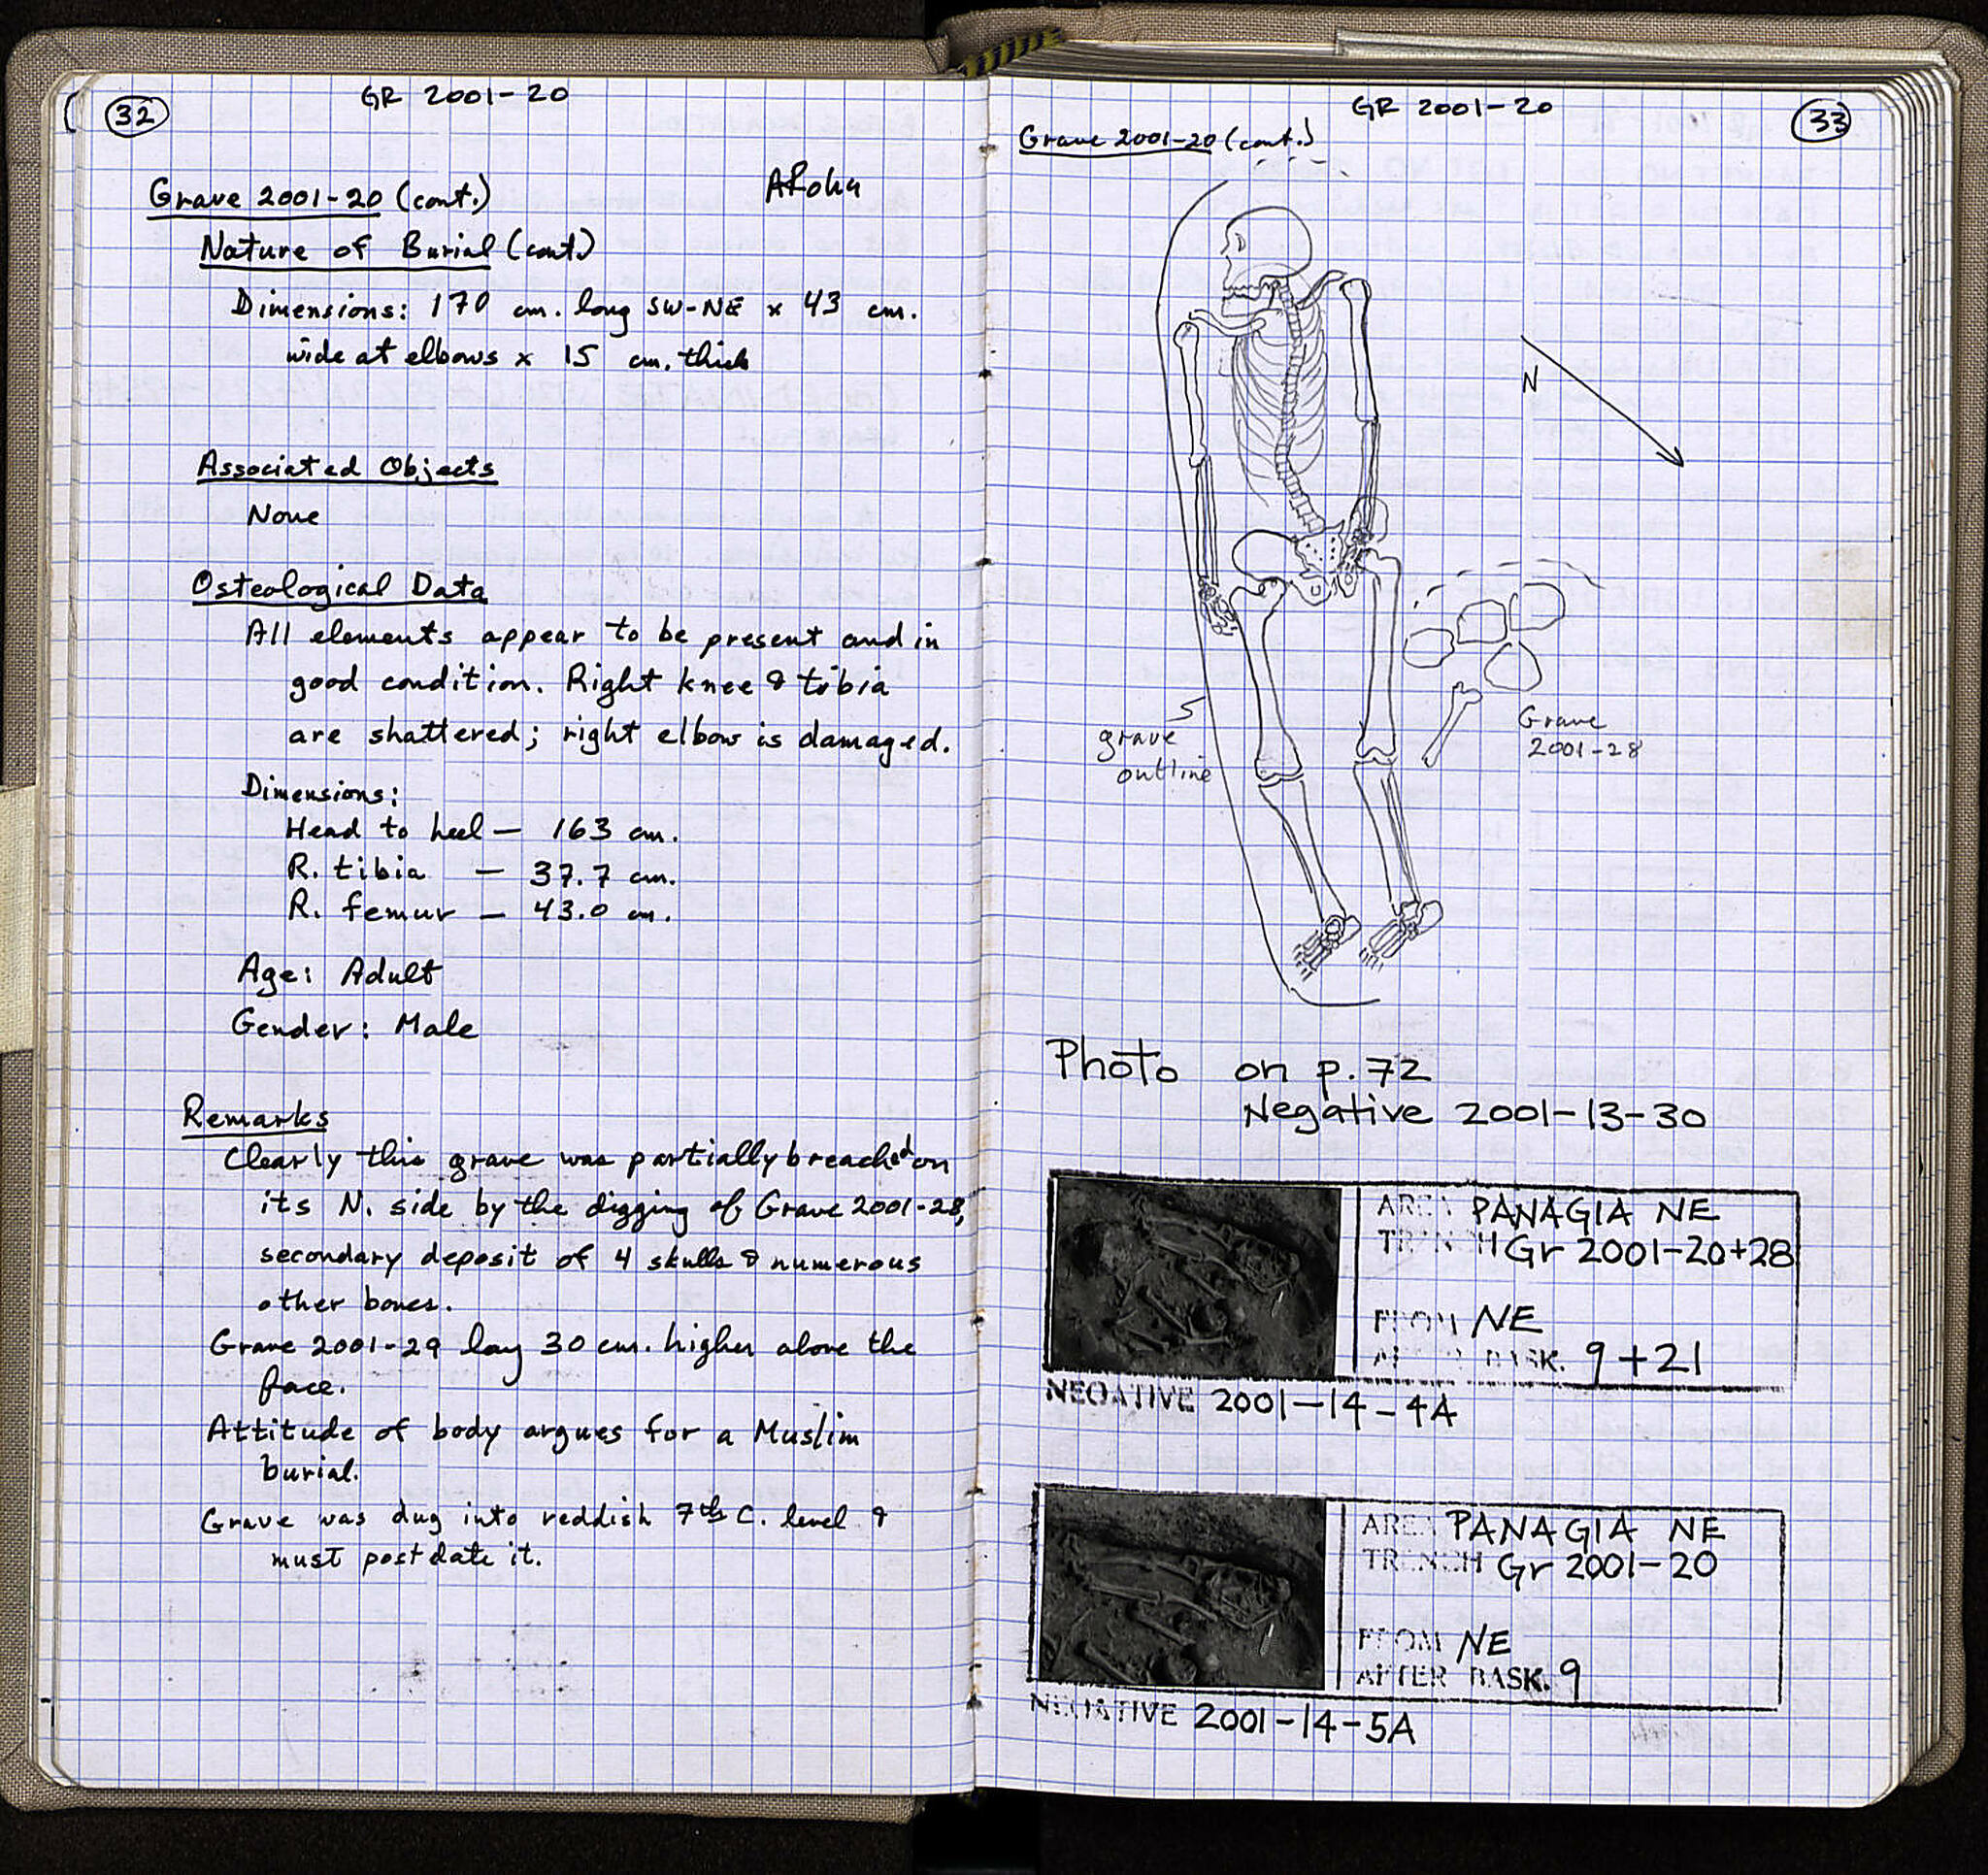 32
GR 2001-20
ARohn
Grave 2001-20 (cont.)
Nature of Burial (cont.)
Dimensions: 170 cm. long SW-NE x 43 cm.
wide at elbows x 15 cm. thick
Associated Objects
None
Osteological Data
All elements appear to be present and in
good condition. Right knee & tibia
are shattered; right elbow is damaged.
Dimensions:
Head to heel — 163 cm.
R. tibia — 37.7 cm.
R. femur — 43.0 cm.
Age: Adult
Gender: Male
Remarks
Clearly this grave was partially breached on
its N. side by the digging of Grave 2001-28,
secondary deposit of 4 skulls & numerous
other bones.
Grave 2001-29 lay 30 cm. higher above the
face.
Attitude of body argues for a Muslim
burial.
Grave was dug into reddish 7th C. level &
must postdate it.
GR 2001-20
33
Grave 2001-20 (cont.)
N
grave
outline
Grave
2001-28
Photo on p. 72
Negative 2001-13-30
AREA PANAGIA NE
TRENCH Gr 2001-20+28
FROM NE
AFTER BASK. 9+21
NEGATIVE 2001-14-4A
AREA PANAGIA NE
TRENCH Gr 2001-20
FROM NE
AFTER BASK. 9
NEGATIVE 2001-14-5A